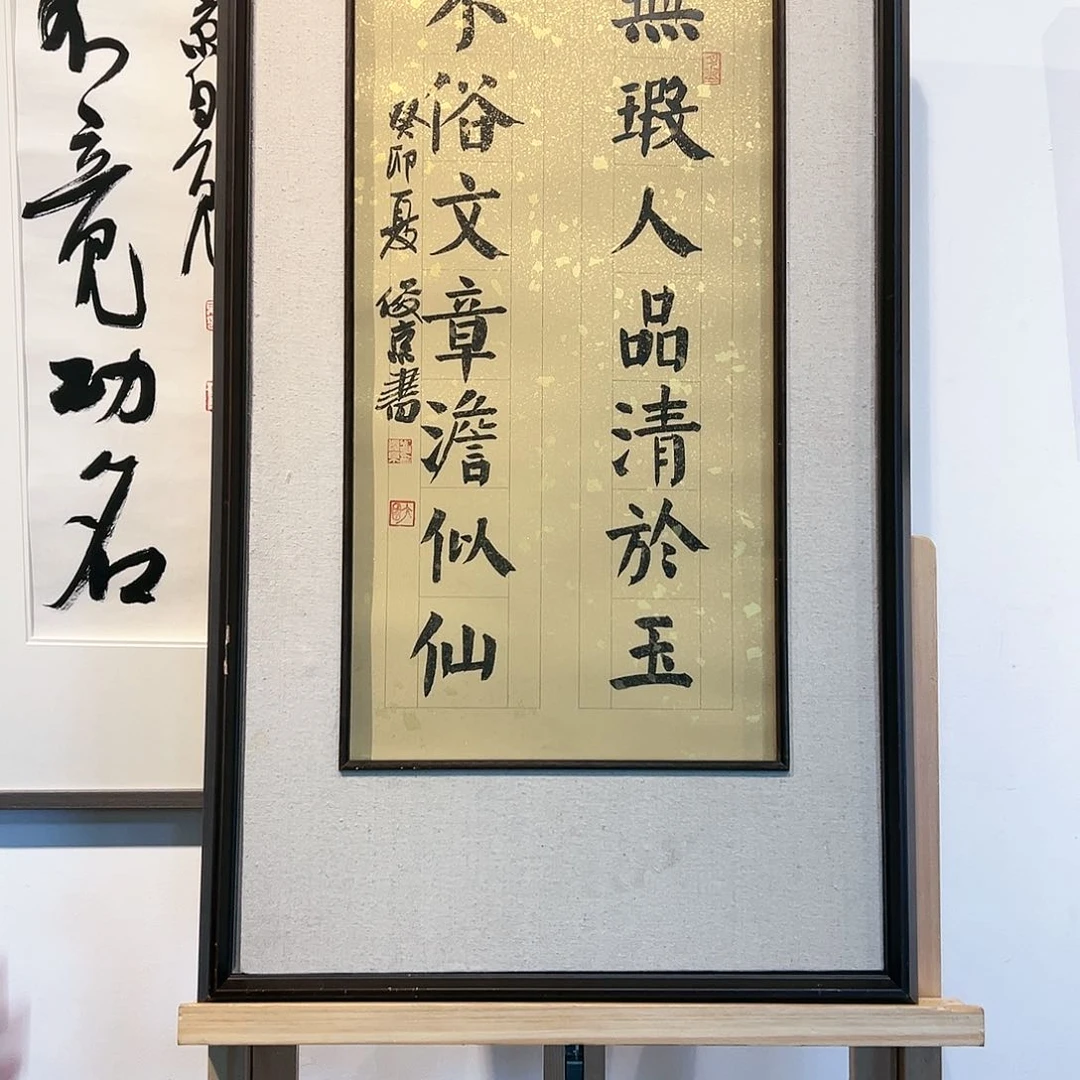 無瑕人品清於玉
不俗文章澹似仙
癸卯夏 俊京書
京自觅
竟功名